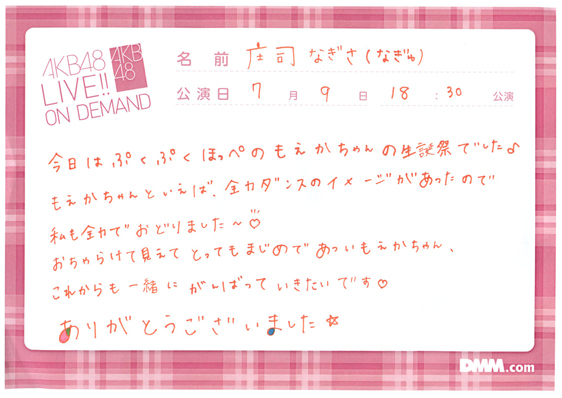 AKB48
LIVE!!
ON DEMAND
AKB
48
名前 庄司 なぎさ(なぎゅ)
公演日 7 月 9 日 18 : 30 公演
今日は ぷくぷくほっぺのもえかちゃんの生誕祭でした♪
もえかちゃんといえば、全力ダンスのイメージがあったので
私も全力でおどりました〜♡
おちゃらけて見えてとってもまじめであついもえかちゃん、
これからも一緒にがんばっていきたいです♡
ありがとうございました☆
DMM.com